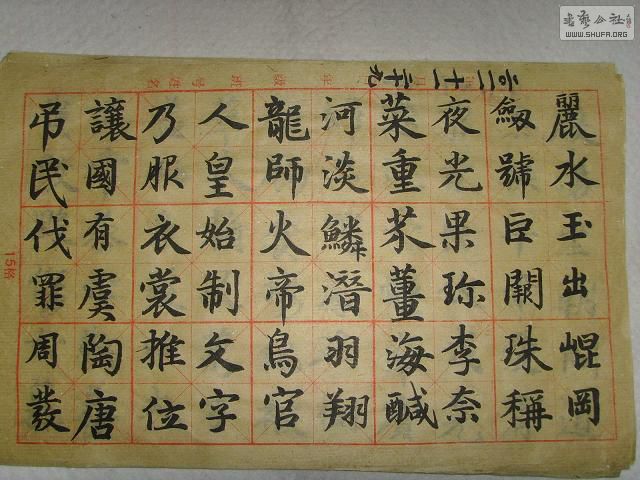 書藝公社
WWW.SHUFA.ORG
麗水玉出崐岡
劔號巨闕珠稱
夜光果珎李奈
菜重芥薑海鹹
河淡鱗潛羽翔
龍師火帝鳥官
人皇始制文字
乃服衣裳推位
讓國有虞陶唐
吊民伐罪周發
15格